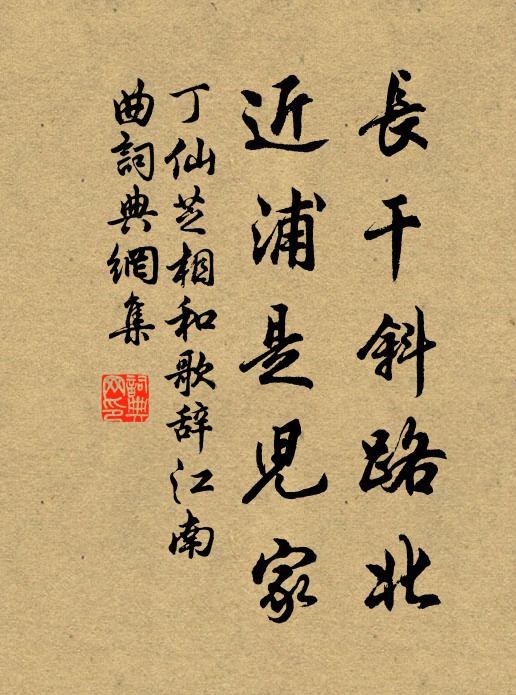 長干斜路北
近浦是兒家
丁仙芝相和歌辞江南
曲詞典網集
詞典
网印